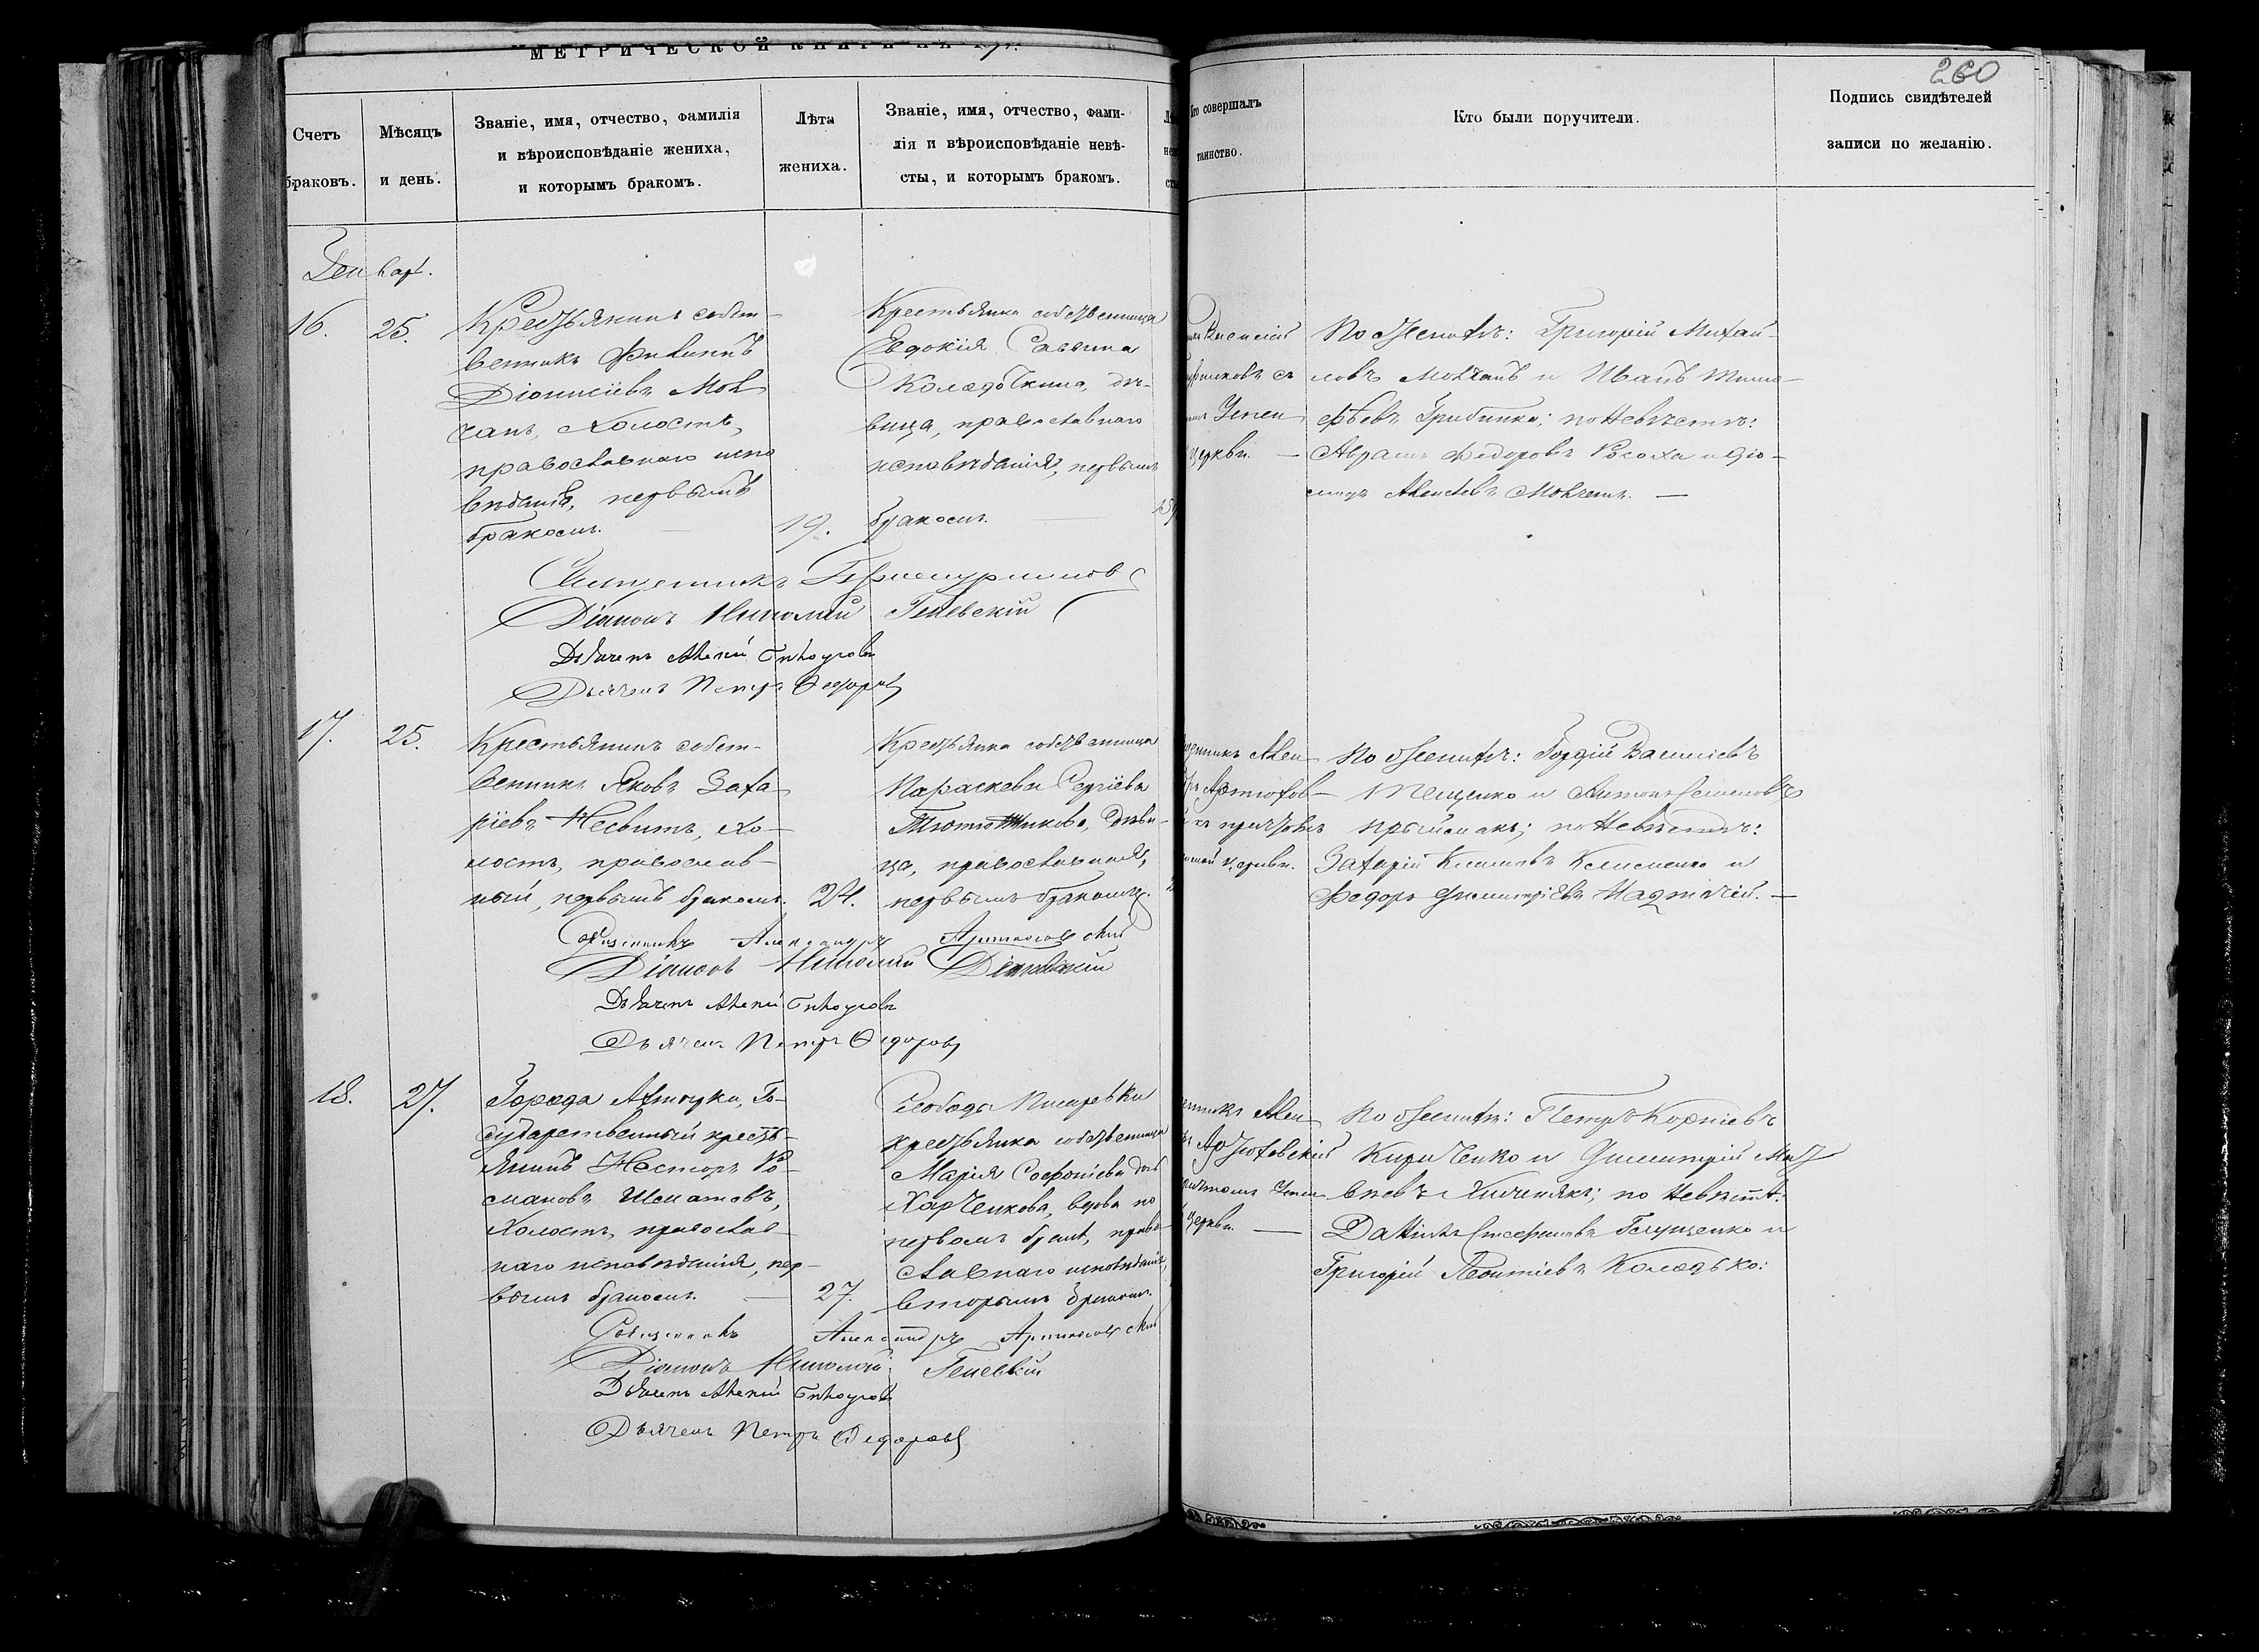 МЕТРИЧЕСКОЙ КНИГИ НА 187
260
Счетъ браковъ.
Мѣсяцъ и день.
Званіе, имя, отчество, фамилія
и вѣроисповѣданіе жениха,
и которымъ бракомъ.
Лѣта жениха.
Званіе, имя, отчество, фами-
лія и вѣроисповѣданіе невѣ-
сты, и которымъ бракомъ.
совершалъ
таинство.
Кто были поручители.
Подпись свидѣтелей
записи по желанію.
Генварь.
16.
25.
Крестьянинъ собст-
венникъ Филипъ
Діонисіевъ Мов
чанъ, холостъ,
православнаго испо
вѣданія, первымъ
бракомъ.
19.
Крестьянка собственница
Евдокія Саввина
Колодочкина, дѣ-
вица, православнаго
исповѣданія, первымъ
бракомъ.
Василій
Успен
церкви.
По женихѣ: Григорій Михай-
ловъ Мовчанъ и Иванъ Тимо-
фѣевъ Грибинка; по невѣстѣ:
Аврамъ Федоровъ Рогоха и Діо-
мидъ Алексѣевъ Мовчанъ.
Священникъ
Діаконъ Николай Геневскій
Дьячекъ Алексѣй
Дьячекъ Петръ Федоровъ
17.
25.
Крестьянинъ собст-
венникъ Яковъ Заха-
ріевъ Несвитъ, хо-
лостъ, православ-
ный, первымъ бракомъ.
24.
Крестьянка собственница
Параскева Сергіева
Тютюнникова, дѣви-
ца, православная,
первымъ бракомъ.
Алек
Артюхов-
съ причтомъ
церкви.
По женихѣ: Гордій Василіевъ
Тещенко и Антонъ Семеновъ
Прыймакъ; по невѣстѣ:
Захарій Климовъ Клименко и
Федоръ Димитріевъ Надточій.
Священникъ Александръ Артюховскій
Діаконъ Николай
Дьячекъ Алексѣй
Дьячекъ Петръ Федоровъ
18.
27.
Города Ахтырки, Го-
сударственный кресть-
янинъ Несторъ Ро-
мановъ Шематовъ,
холостъ, православ-
наго исповѣданія, пер-
вымъ бракомъ.
27.
Слободы Писаревки
крестьянка собственница
Марія Софоніева дочь
Харченкова, вдова по
первомъ бракѣ, право-
славнаго исповѣданія,
вторымъ бракомъ.
Алек
Артюховскій
причтомъ Успен
церкви.
По женихѣ: Петръ Корніевъ
Кириченко и Димитрій Мат
вѣевъ Хиченякъ; по невѣстѣ:
Даніилъ Стефановъ Глущенко и
Григорій Леонтіевъ Колодько:
Священникъ Александръ Артюховскій
Діаконъ Николай Геневскій
Дьячекъ Алексѣй
Дьячекъ Петръ Федоровъ